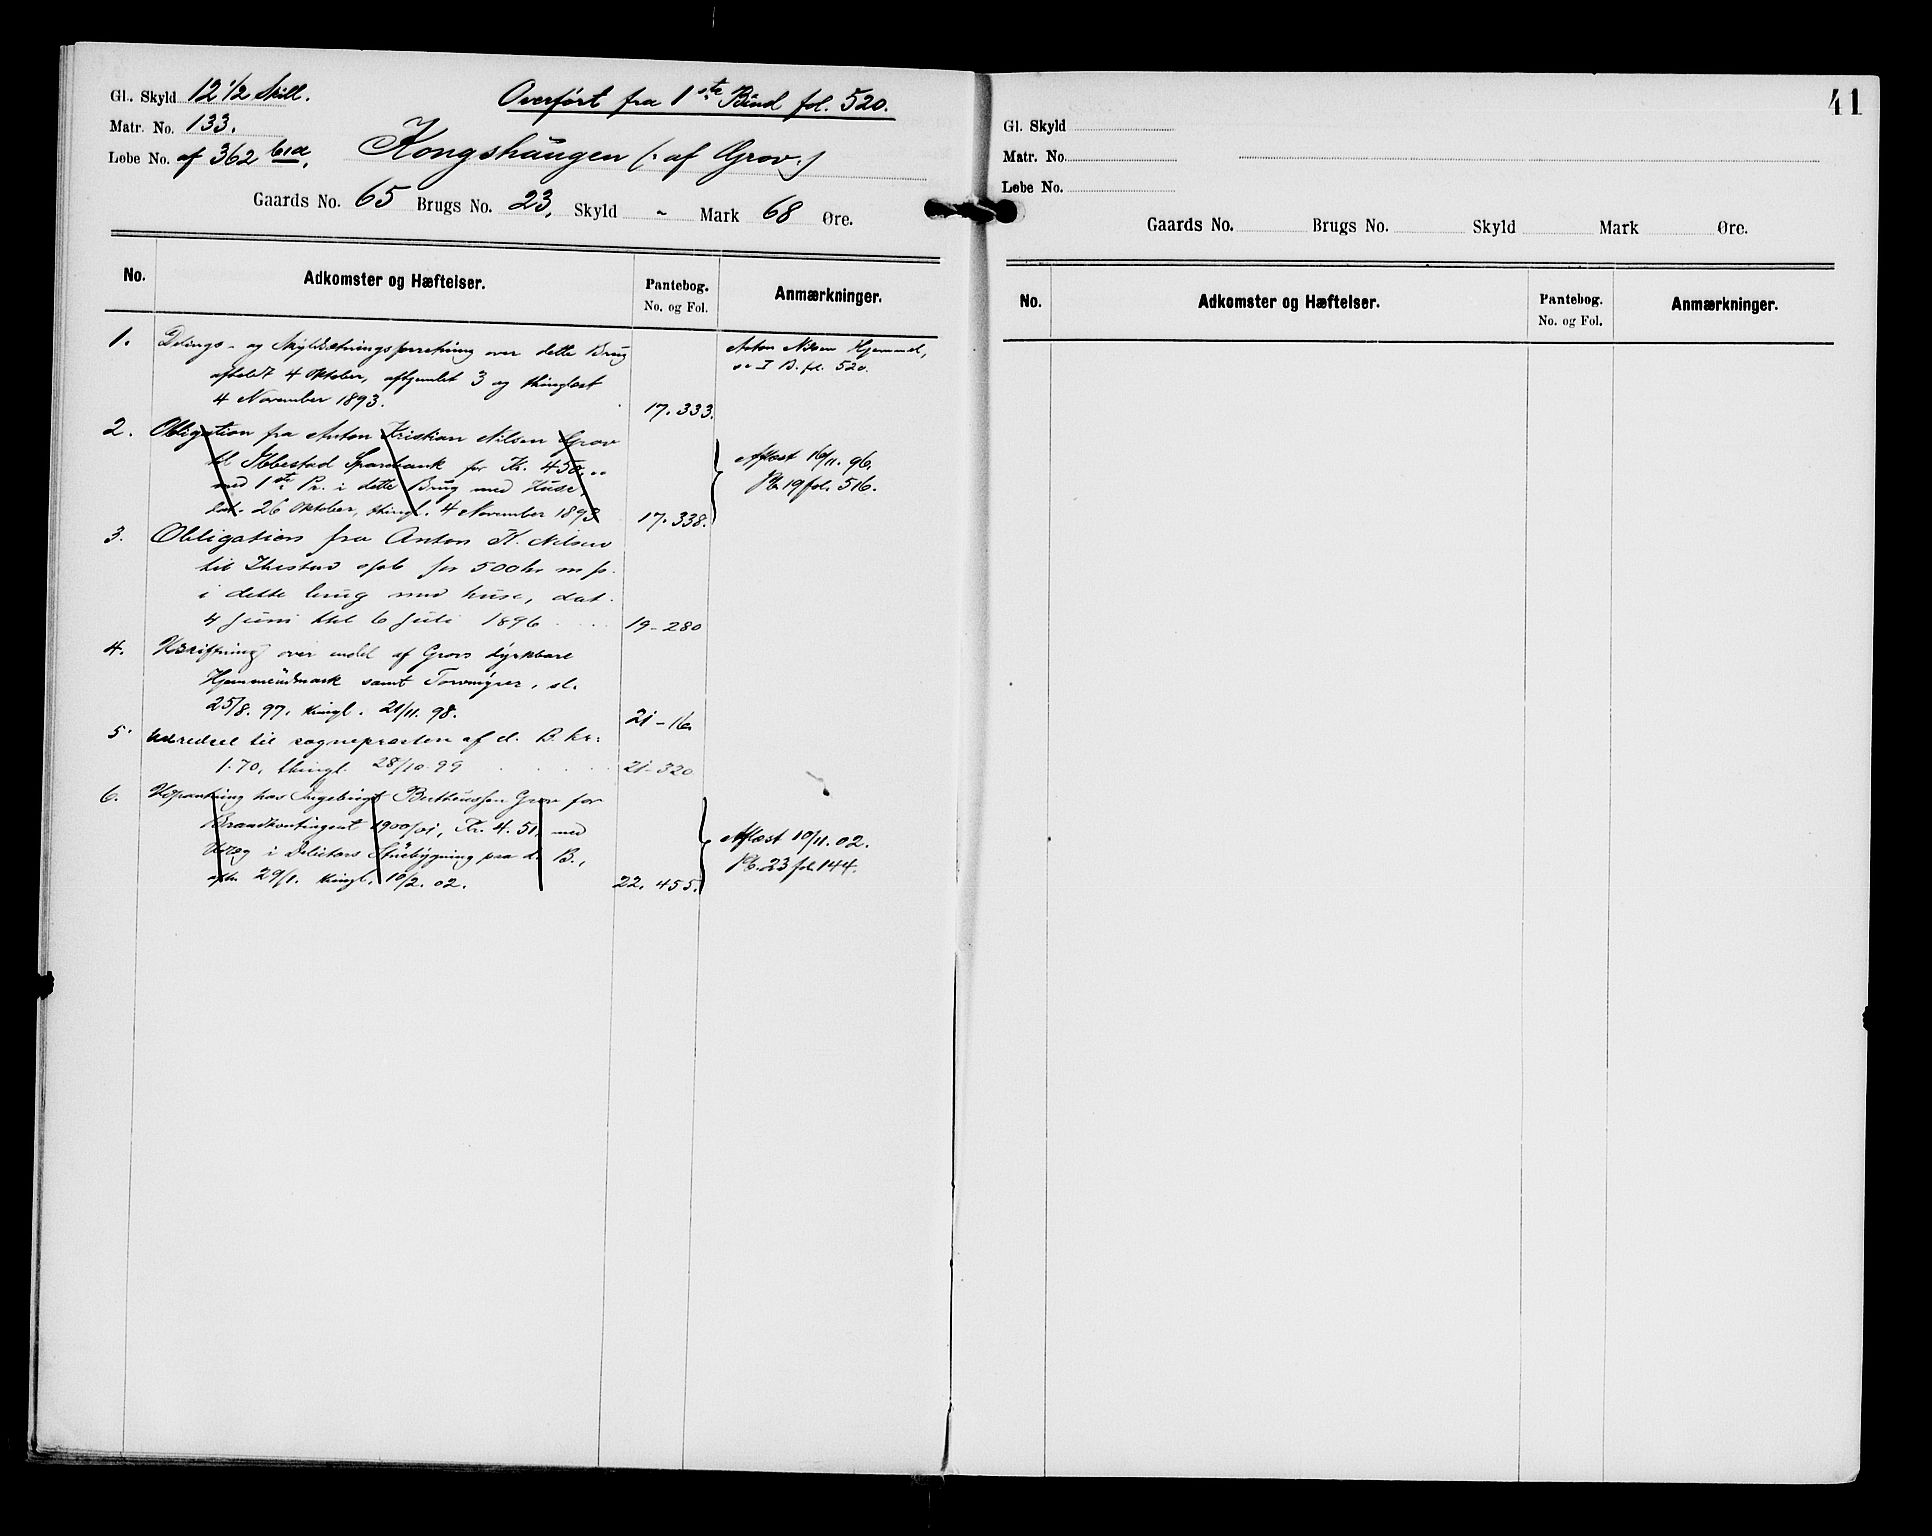 Gl. Skyld 12 1/2 Skill.
Overført fra 1ste Bind fol. 520.
Matr. No. 133.
Løbe No. af 362 b1a. Kongshaugen (: af Grov :)
Gaards No. 65 Brugs No. 23, Skyld ~ Mark 68 Øre.
No. Adkomster og Hæftelser. Pantebog. No. og Fol. Anmærkninger.
1. Delings- og Skyldsætningsforretning over dette Brug
afholdt 4 Oktober, afhjemlet 3 og thinglæst
4 November 1893. 17. 333.
Anton Nilsen Hjemmel,
se I B. fol. 520.
2. Obligation fra Anton Kristian Nilsen Grov
til Ibbestad Sparebank for Kr. 450,
med 1ste Pr. i dette Brug med Huse,
dat. 26 Oktober, thingl. 4 November 1893 17. 338.
Aflæst 16/11. 96.
Pb. 19 fol. 516.
3. Obligation fra Anton K. Nilsen
til Ibestad spb for 500 kr m p.
i dette brug med huse, dat.
4 juni thl 6 juli 1896 19-280
4. Udskiftning over endel af Grovs dyrkbare
Hjemmeudmark samt Torvmyrer, sl.
25/8. 97, thingl. 21/11. 98. 21-16.
5. Udredsel til sognepræsten af d. B. kr.
1.70, thingl. 28/10. 99 21-320
6. Udpantning hos Ingebrigt Bertheussen Grov for
Brandkontingent 1900/01, Kr. 4. 51, med
Udlæg i Debitors Stuebygning paa d. B.,
afh. 29/1. thingl. 10/2. 02. 22. 455.
Aflæst 10/11. 02.
Pb. 23 fol. 144.
41
Gl. Skyld
Matr. No.
Løbe No.
Gaards No. Brugs No. Skyld Mark Øre.
No. Adkomster og Hæftelser. Pantebog. No. og Fol. Anmærkninger.